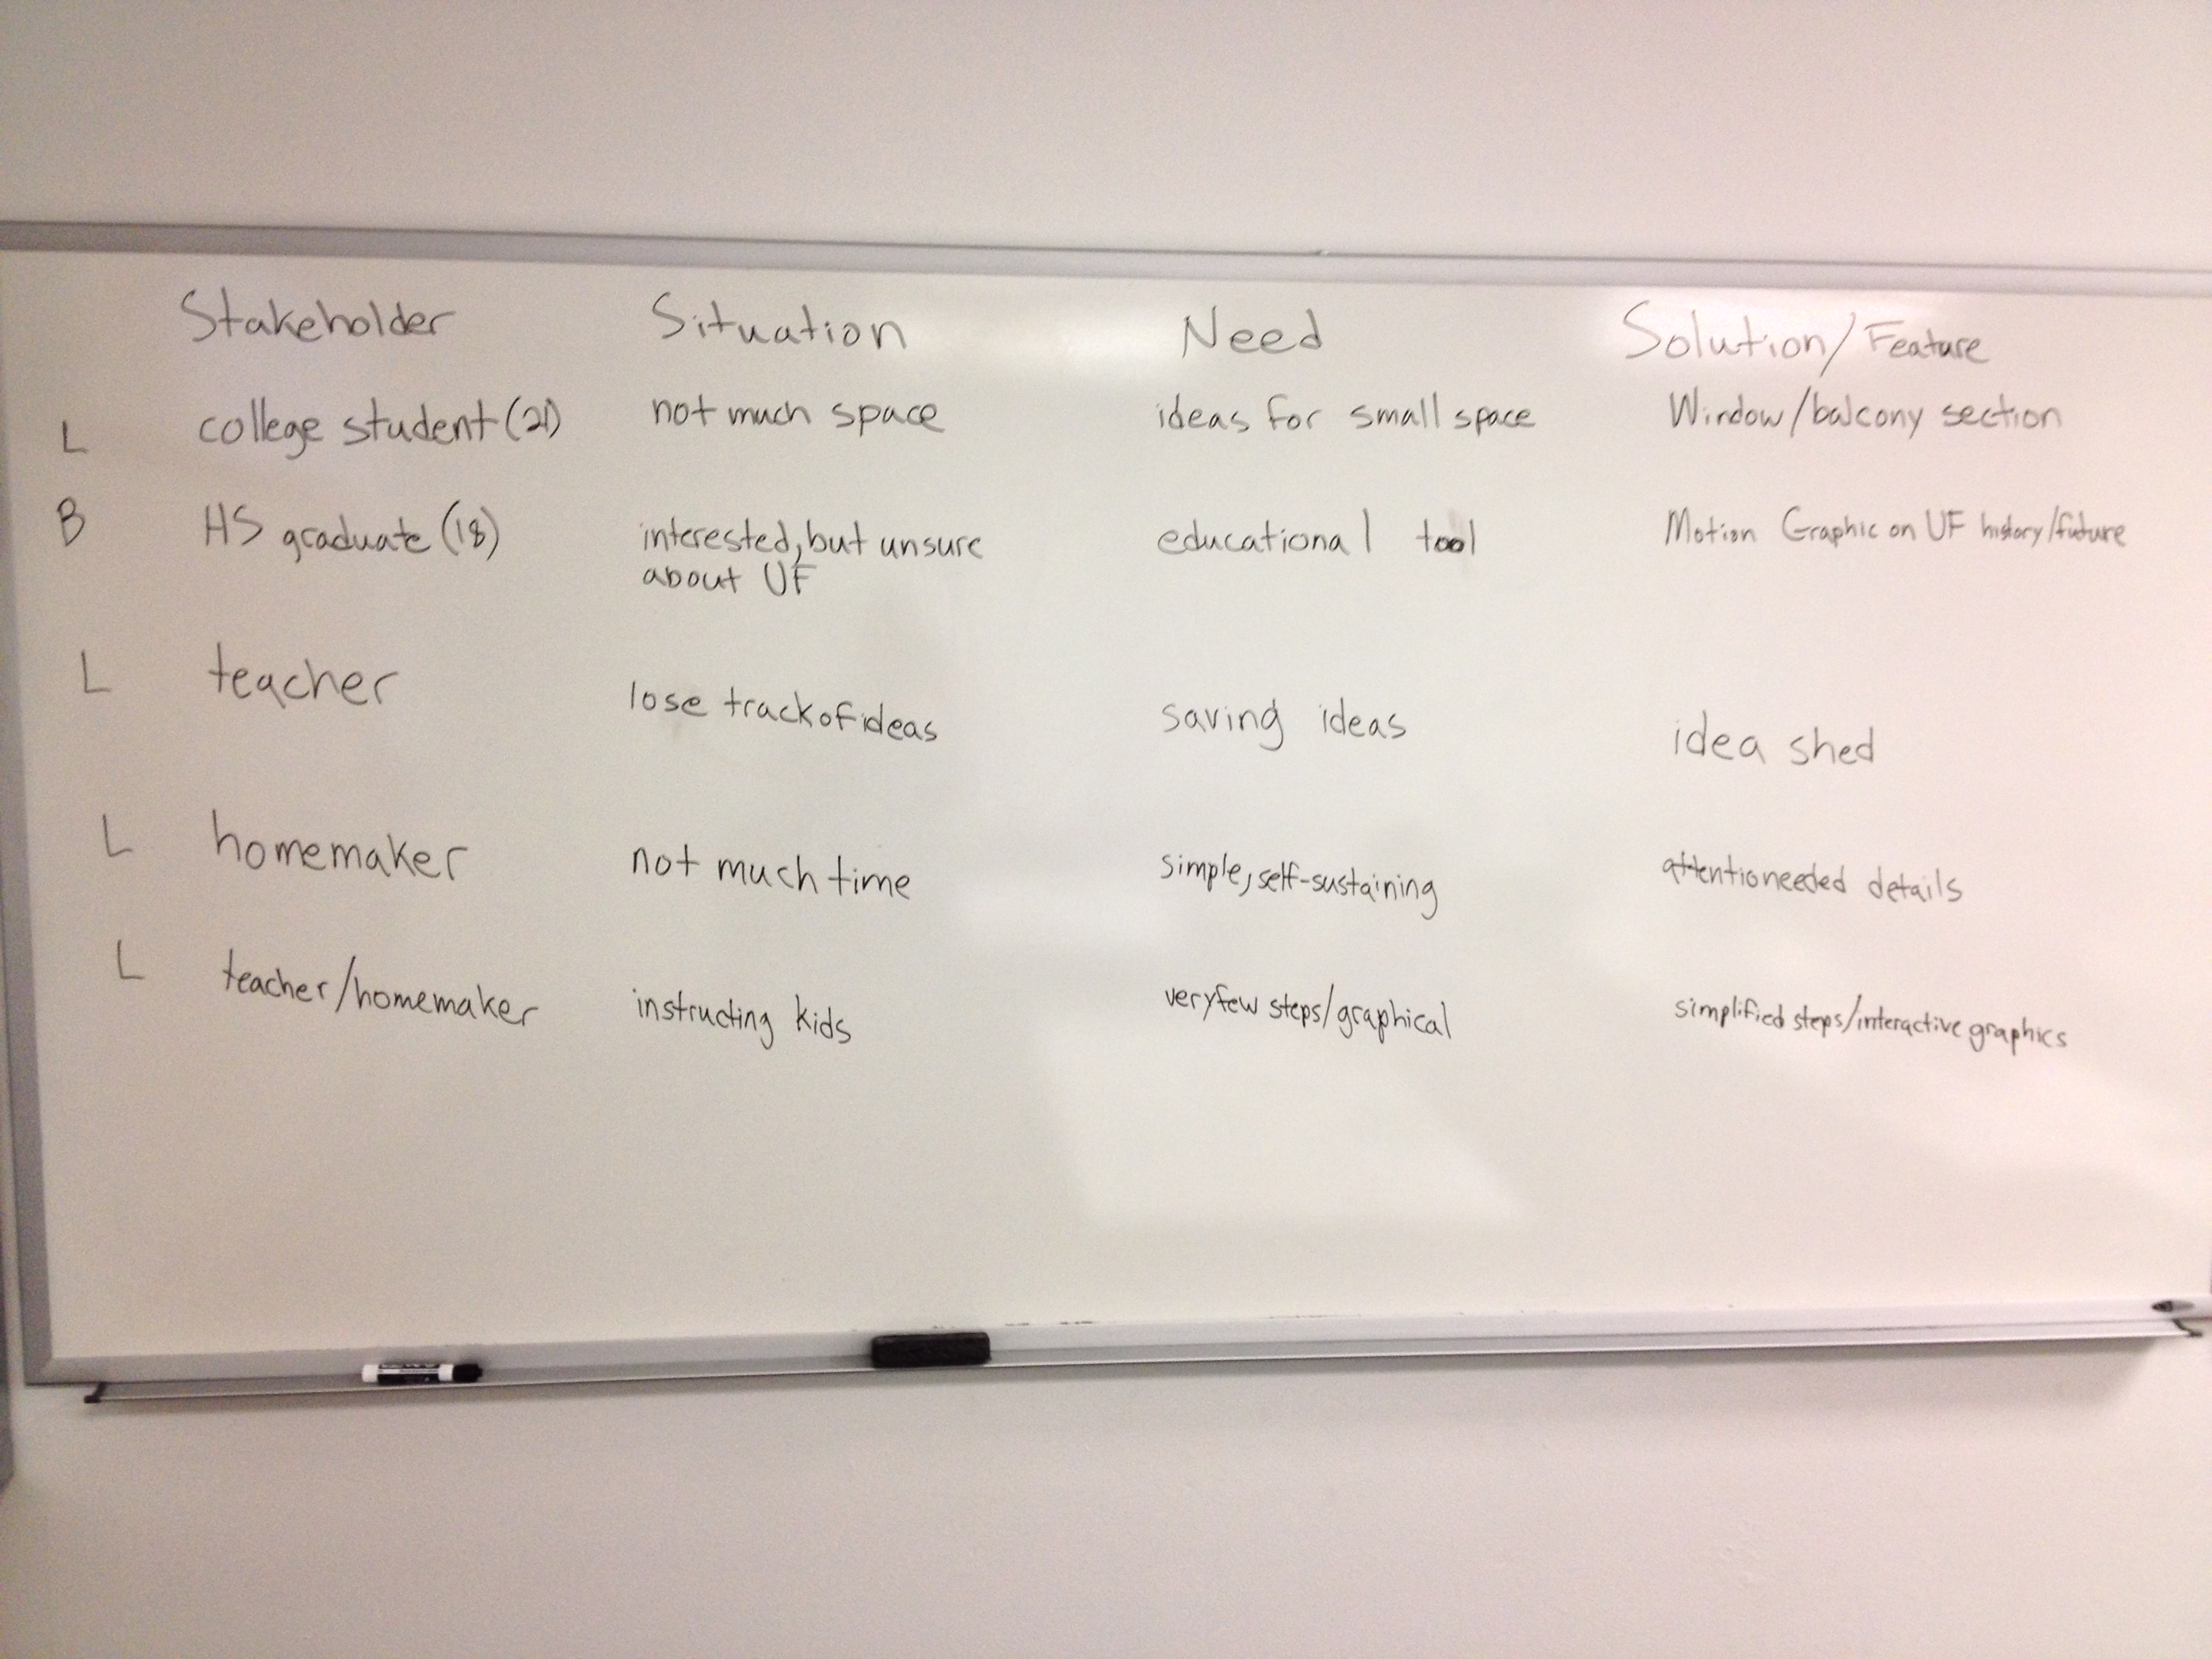 Stakeholder Situation Need Solution/Feature
L college student (21) not much space ideas for small space Window/balcony section
B HS graduate (18) interested, but unsure educational tool Motion Graphic on UF history/future
about UF
L teacher lose track of ideas saving ideas idea shed
L homemaker not much time simple, self-sustaining attentioneeded details
L teacher/homemaker instructing kids very few steps/graphical simplified steps/interactive graphics